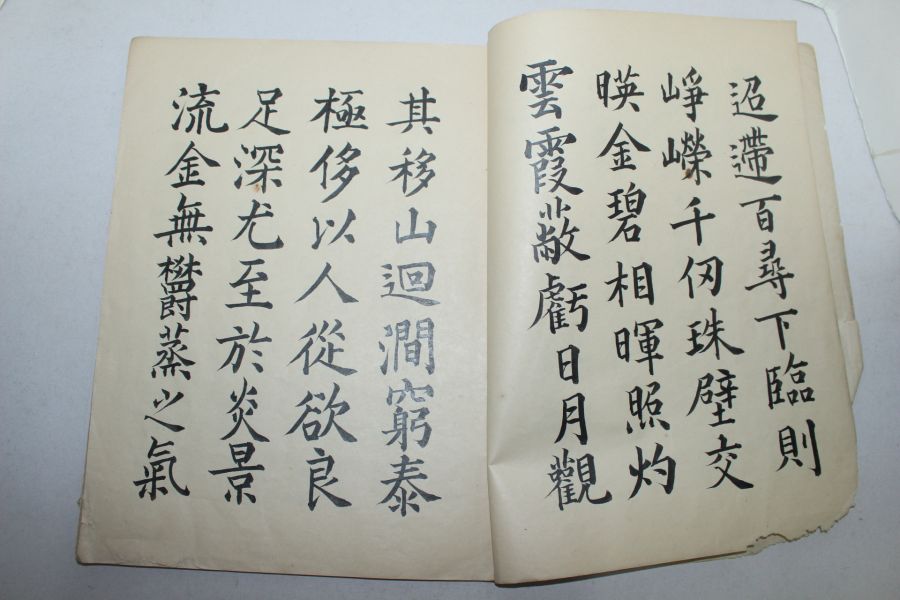 迢遰百尋下臨則
崢嶸千仞珠壁交
暎金碧相暉照灼
雲霞蔽虧日月觀
其移山迴澗窮泰
極侈以人從欲良
足深尤至於炎景
流金無欝蒸之氣